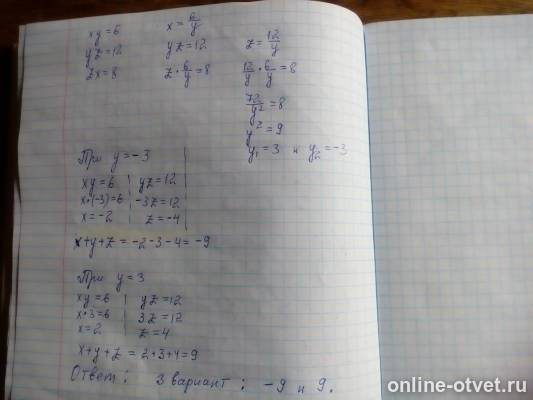 xy=6
yz=12
zx=8
x=6/y
yz=12
z·6/y=8
z=12/y
12/y·6/y=8
72/y²=8
y²=9
y₁=3 и y₂=-3
При y=-3
xy=6 | yz=12
x·(-3)=6 | -3z=12
x=-2 | z=-4
x+y+z=-2-3-4=-9
При y=3
xy=6 | yz=12
x·3=6 | 3z=12
x=2 | z=4
x+y+z=2+3+4=9
Ответ: 3 вариант: -9 и 9.
online-otvet.ru